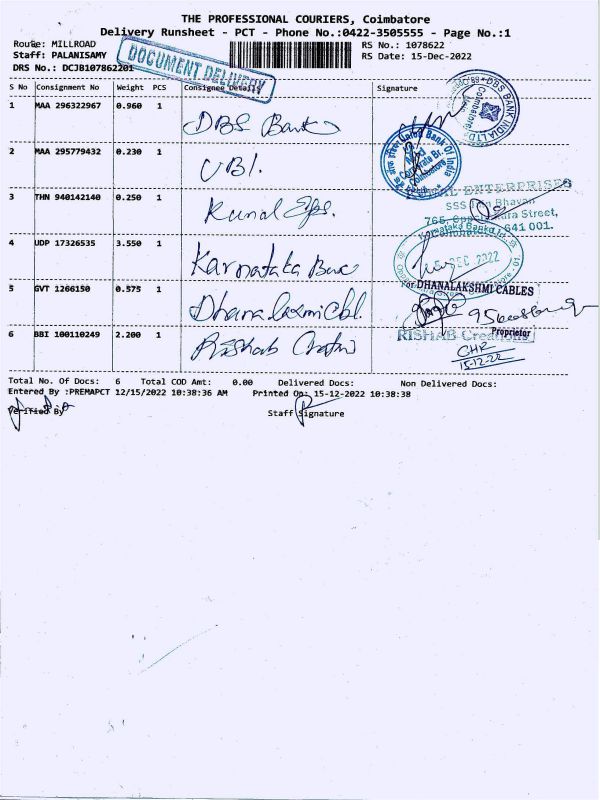 THE PROFESSIONAL COURIERS, Coimbatore
Delivery Runsheet - PCT - Phone No.:0422-3505555 - Page No.:1
Route: MILLROAD
RS No.: 1078622
Staff: PALANISAMY
RS Date: 15-Dec-2022
DRS No.: DCJB107862201
DOCUMENT DELIVERY
S No Consignment No Weight PCS Consignee Details Signature
1 MAA 296322967 0.960 1 DBS Bank
DBS BANK INDIA LTD
Coimbatore
2 MAA 295779432 0.230 1 UBI.
Union Bank Of India
Corporate Br.
Coimbatore
3 THN 940142140 0.250 1 Kunal Eps.
ENTERPRISES
SSS Bhavan
Street,
641 001.
4 UDP 17326535 3.550 1 Karnataka Banc
Karnataka Bank
DEC 2022
5 GVT 1266150 0.575 1 Dhanalaxmi Cbl.
For DHANALAKSHMI CABLES
Proprietor
6 BBI 100110249 2.200 1 Rishab
RISHAB Creations
CHR
15-12-22
Total No. Of Docs: 6 Total COD Amt: 0.00 Delivered Docs: Non Delivered Docs:
Entered By :PREMAPCT 12/15/2022 10:38:36 AM Printed On: 15-12-2022 10:38:38
Verified By
Staff Signature